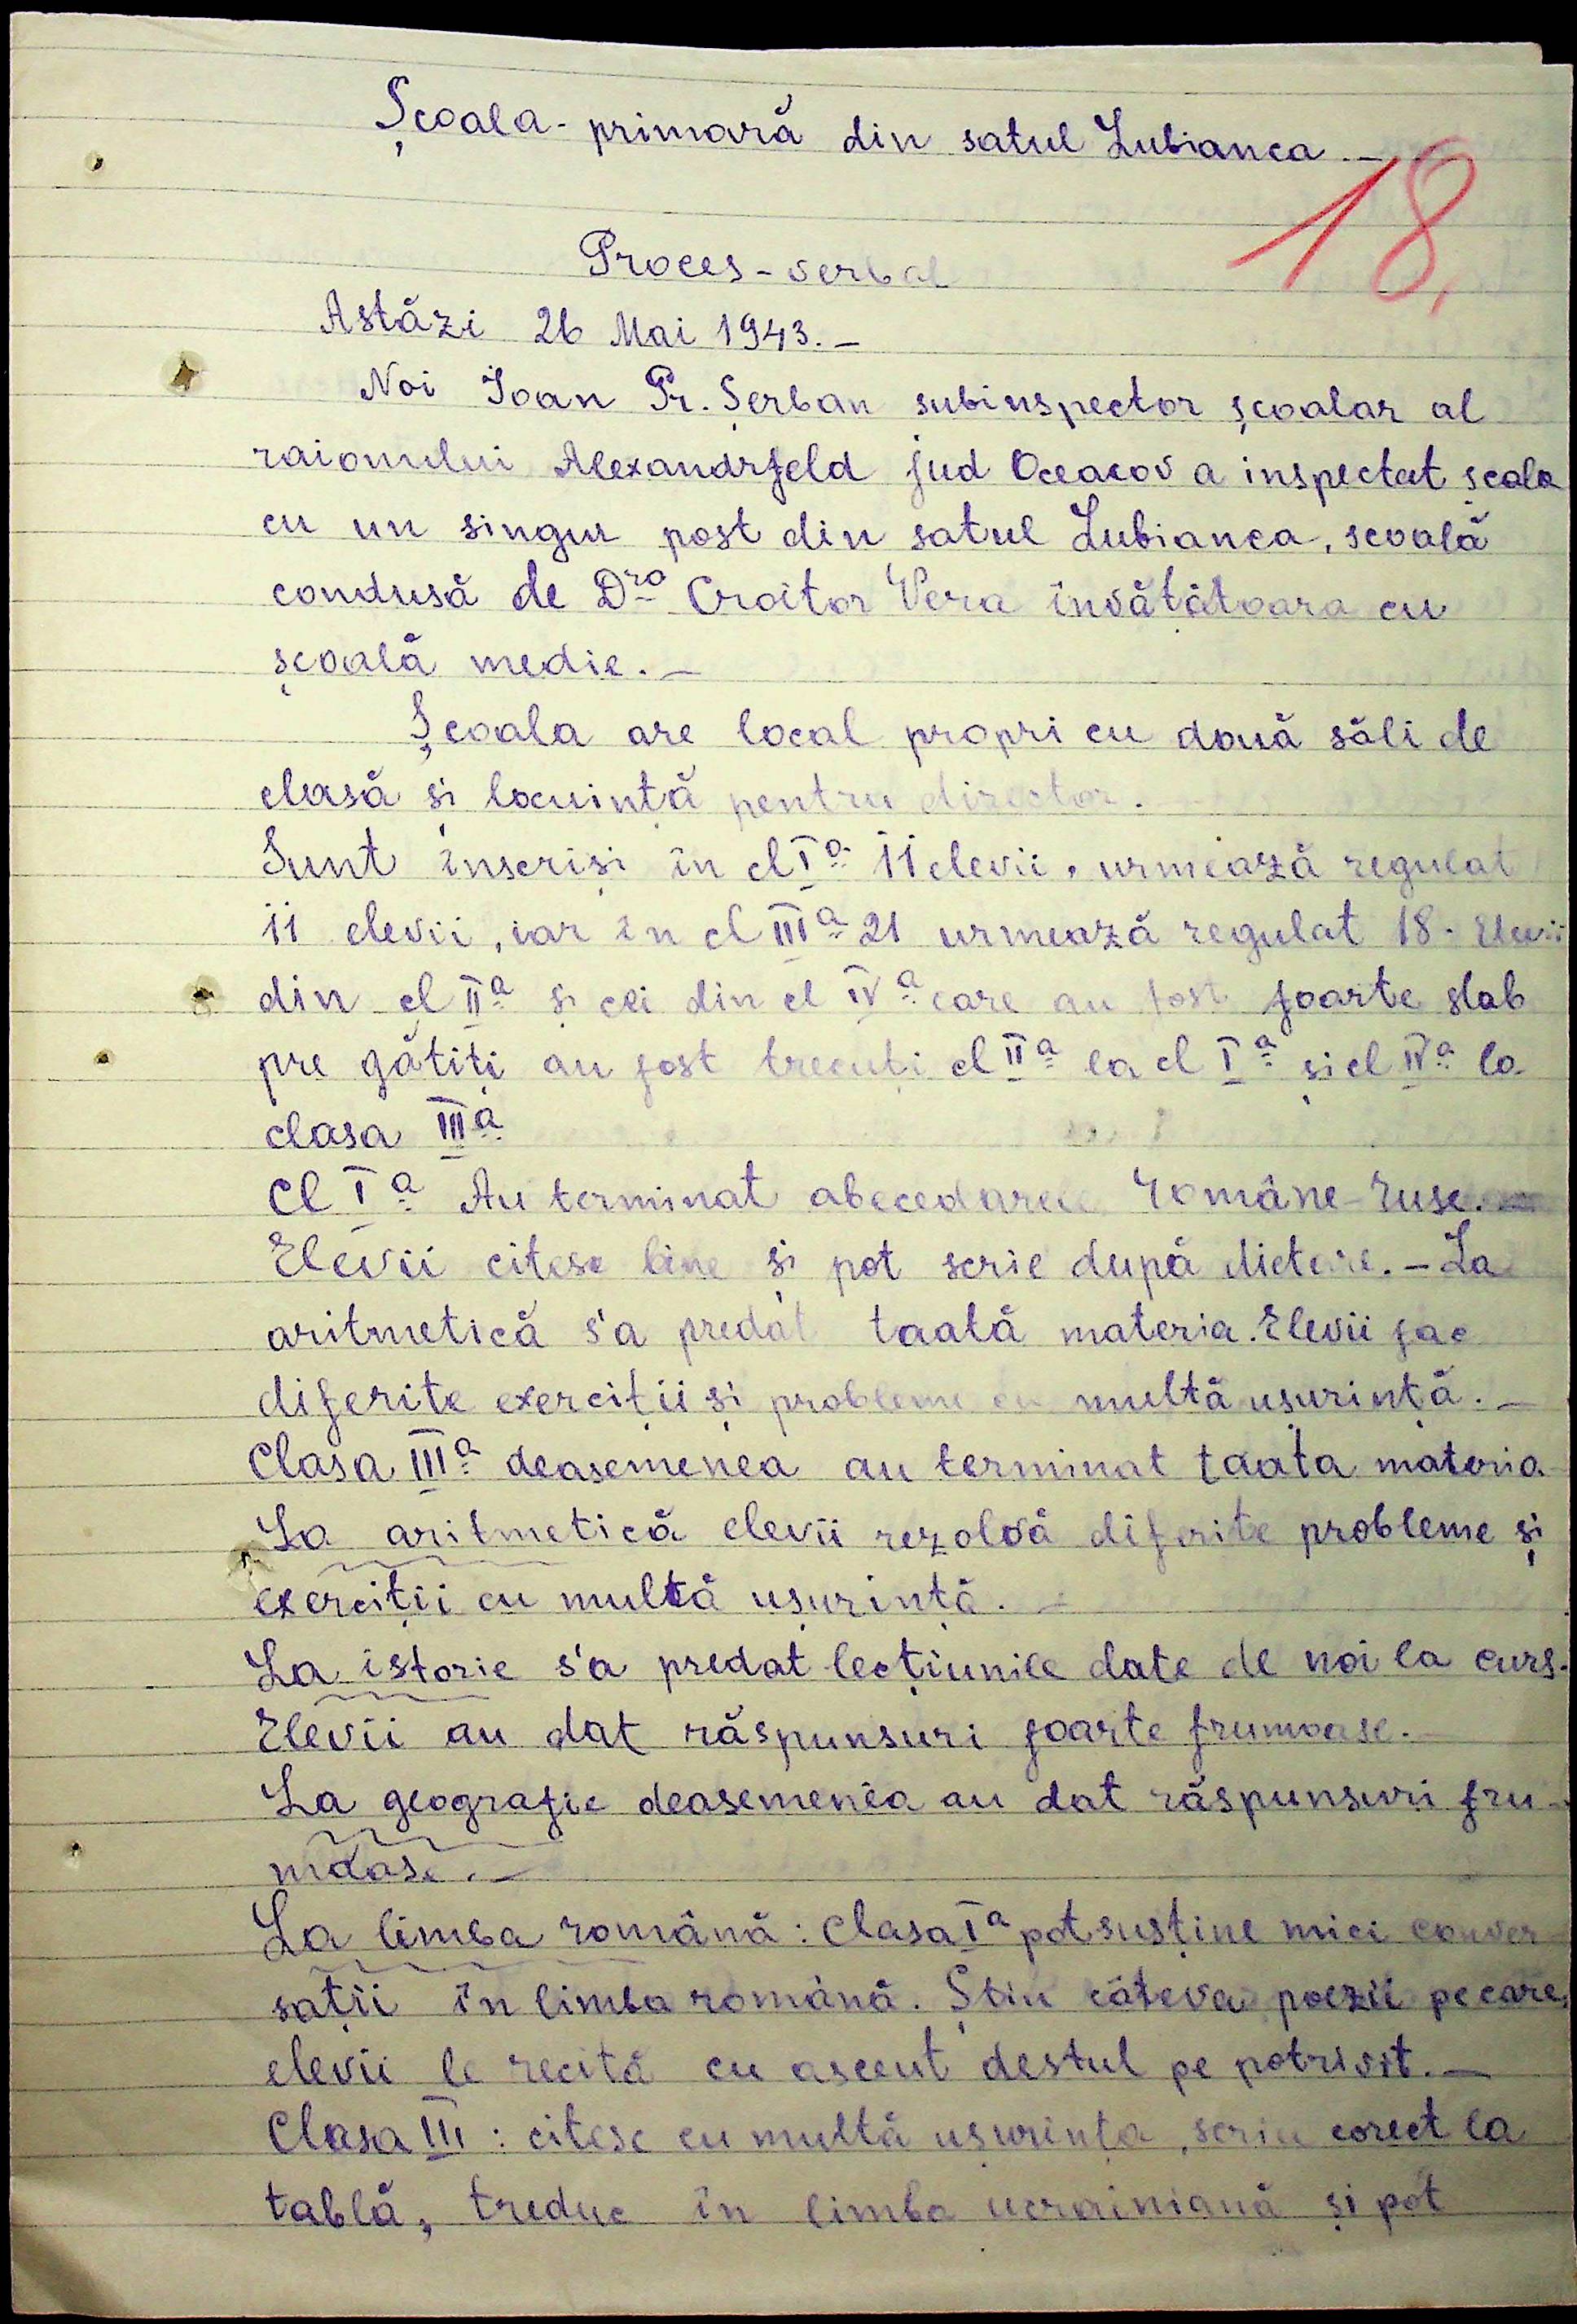 Școala-primară din satul Lubianca.-
18.
Proces-verbal
Astăzi 26 Mai 1943.-
Noi Ioan Pr. Șerban subinspector școalar al
raionului Alexandrfeld jud Oceacov a inspectat școla
cu un singur post din satul Lubianca, scoală
condusă de Dra Croitor Vera învățătoara cu
școală medie.-
Școala are local propri cu două săli de
clasă și locuință pentru director.
Sunt înscriși în cl Ia 11 elevii, urmează regulat
11 elevii, iar în cl IIIa 21 urmează regulat 18. Elevii
din cl IIa și cei din cl IVa care au fost foarte slab
pre gătiți au fost trecuți cl IIa la cl Ia și cl IVa la
clasa IIIa
Cl Ia Au terminat abecedarele Române-Ruse.-
Elevii citesc bine și pot scrie după dictare.-La
aritmetică s'a predat taată materia. Elevii fac
diferite exerciții și probleme cu multă ușurință.-
Clasa IIIa deasemenea au terminat taata materia
La aritmetică elevii rezolvă diferite probleme și
exerciții cu multă ușurință.-
La istorie s'a predat lecțiunile date de noi la curs.
Elevii au dat răspunsuri foarte frumoase.-
La geografie deasemenea au dat răspunsuri fru-
moase.-
La limba română: Clasa Ia pot susține mici conver
sații în limba română. Știu câteva poezii pe care
elevii le recită cu ascent destul pe potrivit.-
Clasa III: citesc cu multă ușurința, scriu corect la
tablă, treduc în limba ucrainiană și pot